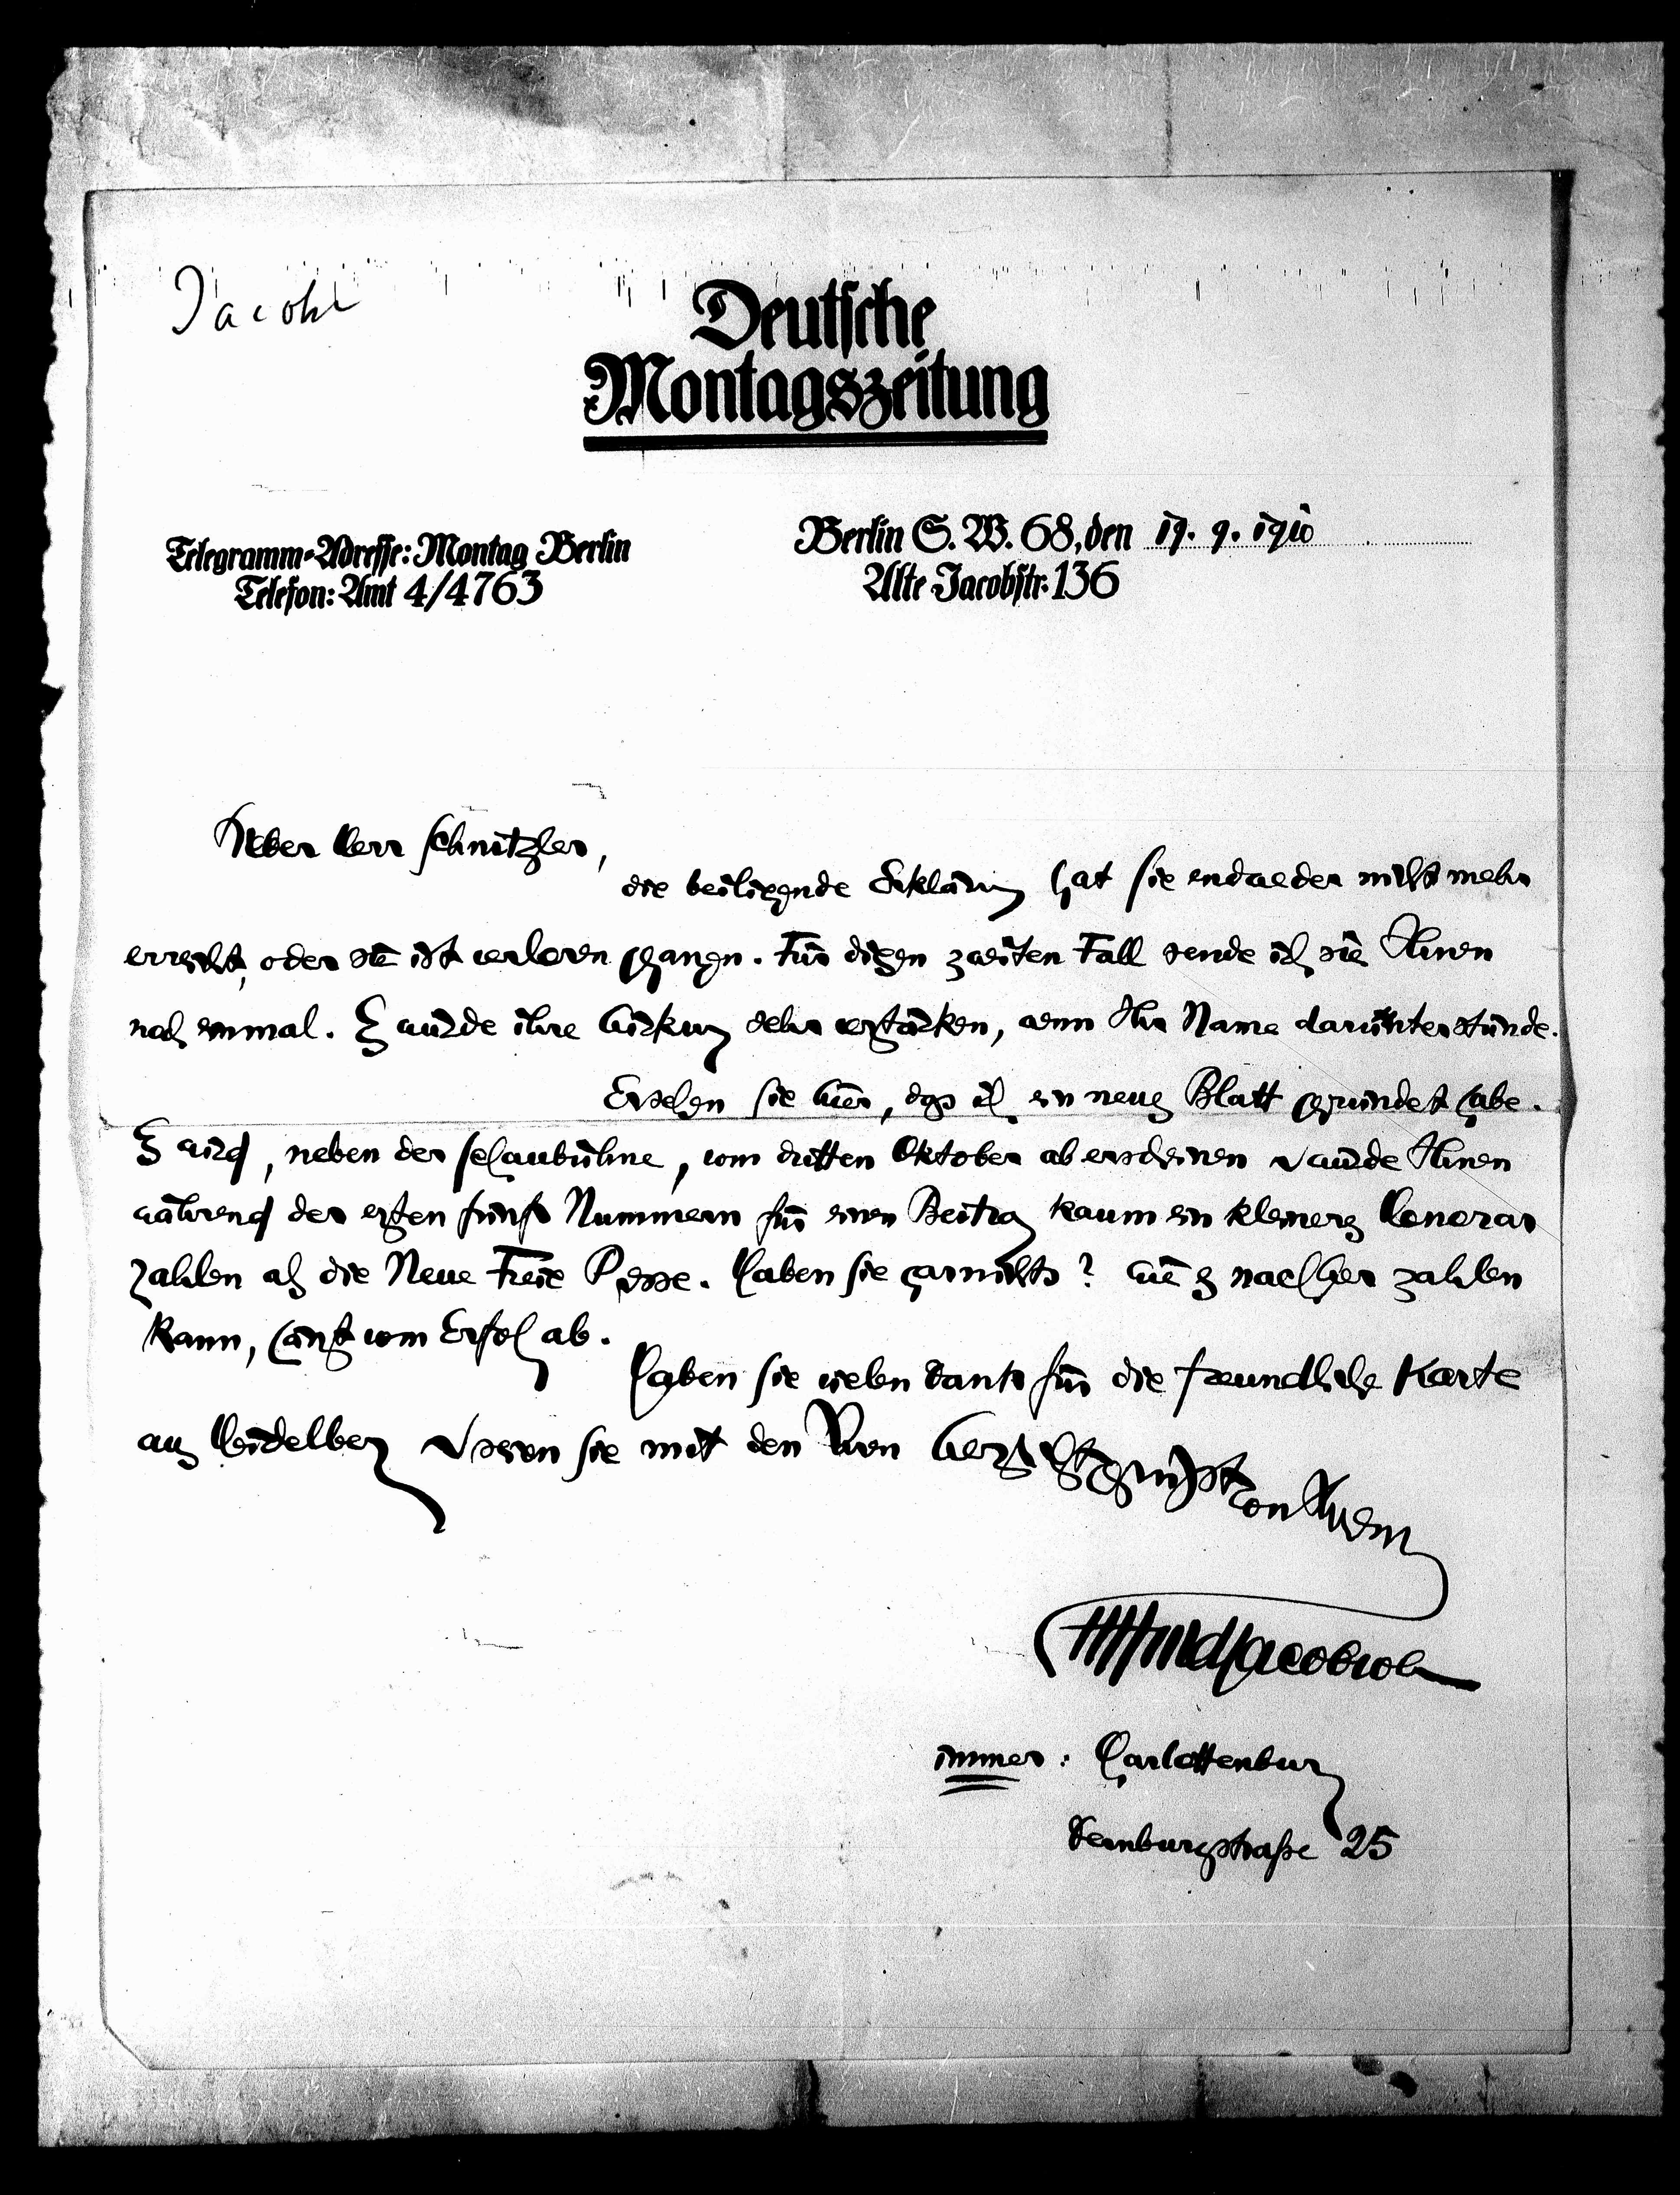 Jacobs
Deutsche
Montagszeitung
Telegramm-Adresse: Montag Berlin
Telefon: Amt 4/4763
Berlin S. W. 68, den 19. 9. 1910
Alte Jacobstr. 136
Lieber Herr Schnitzler,
die beiliegende Erklärung hat Sie entweder nicht mehr
erreicht, oder sie ist verloren gegangen. Für diesen zweiten Fall sende ich sie Ihnen
noch einmal. Es würde ihre Wirkung sehr verstärken, wenn Ihr Name darunter stünde.
Ersehen Sie hier, dass ich ein neues Blatt gegründet habe.
Es wird, neben der Schaubühne, vom dritten Oktober ab erscheinen und würde Ihnen
während der ersten fünf Nummern für einen Beitrag kaum ein kleineres Honorar
zahlen als die Neue Freie Presse. Haben Sie garnichts? Wie es nachher zahlen
kann, hängt vom Erfolg ab.
Haben Sie vielen Dank für die freundliche Karte
aus Heidelberg und seien Sie mit den Ihren herzlichst gegrüsst von Ihrem
Siegfried Jacobsohn
immer: Charlottenburg
Dernburgstraße 25